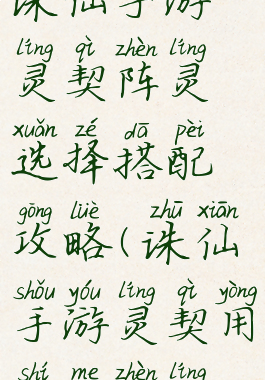 诛仙手游
líng qì zhèn líng
灵契阵灵
xuǎn zé dā pèi
选择搭配
gōng lüè zhū xiān
攻略(诛仙
shǒu yóu líng qì yòng
手游灵契用
shí me zhèn líng